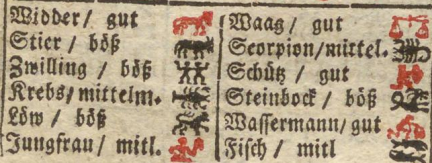 Widder / gut
Stier / böß
Zwilling / böß
Krebs / mittelm.
Löw / böß
Jungfrau / mitl.
Waag / gut
Scorpion / mittel.
Schütz / gut
Steinbock / böß
Wassermann / gut
Fisch / mitl